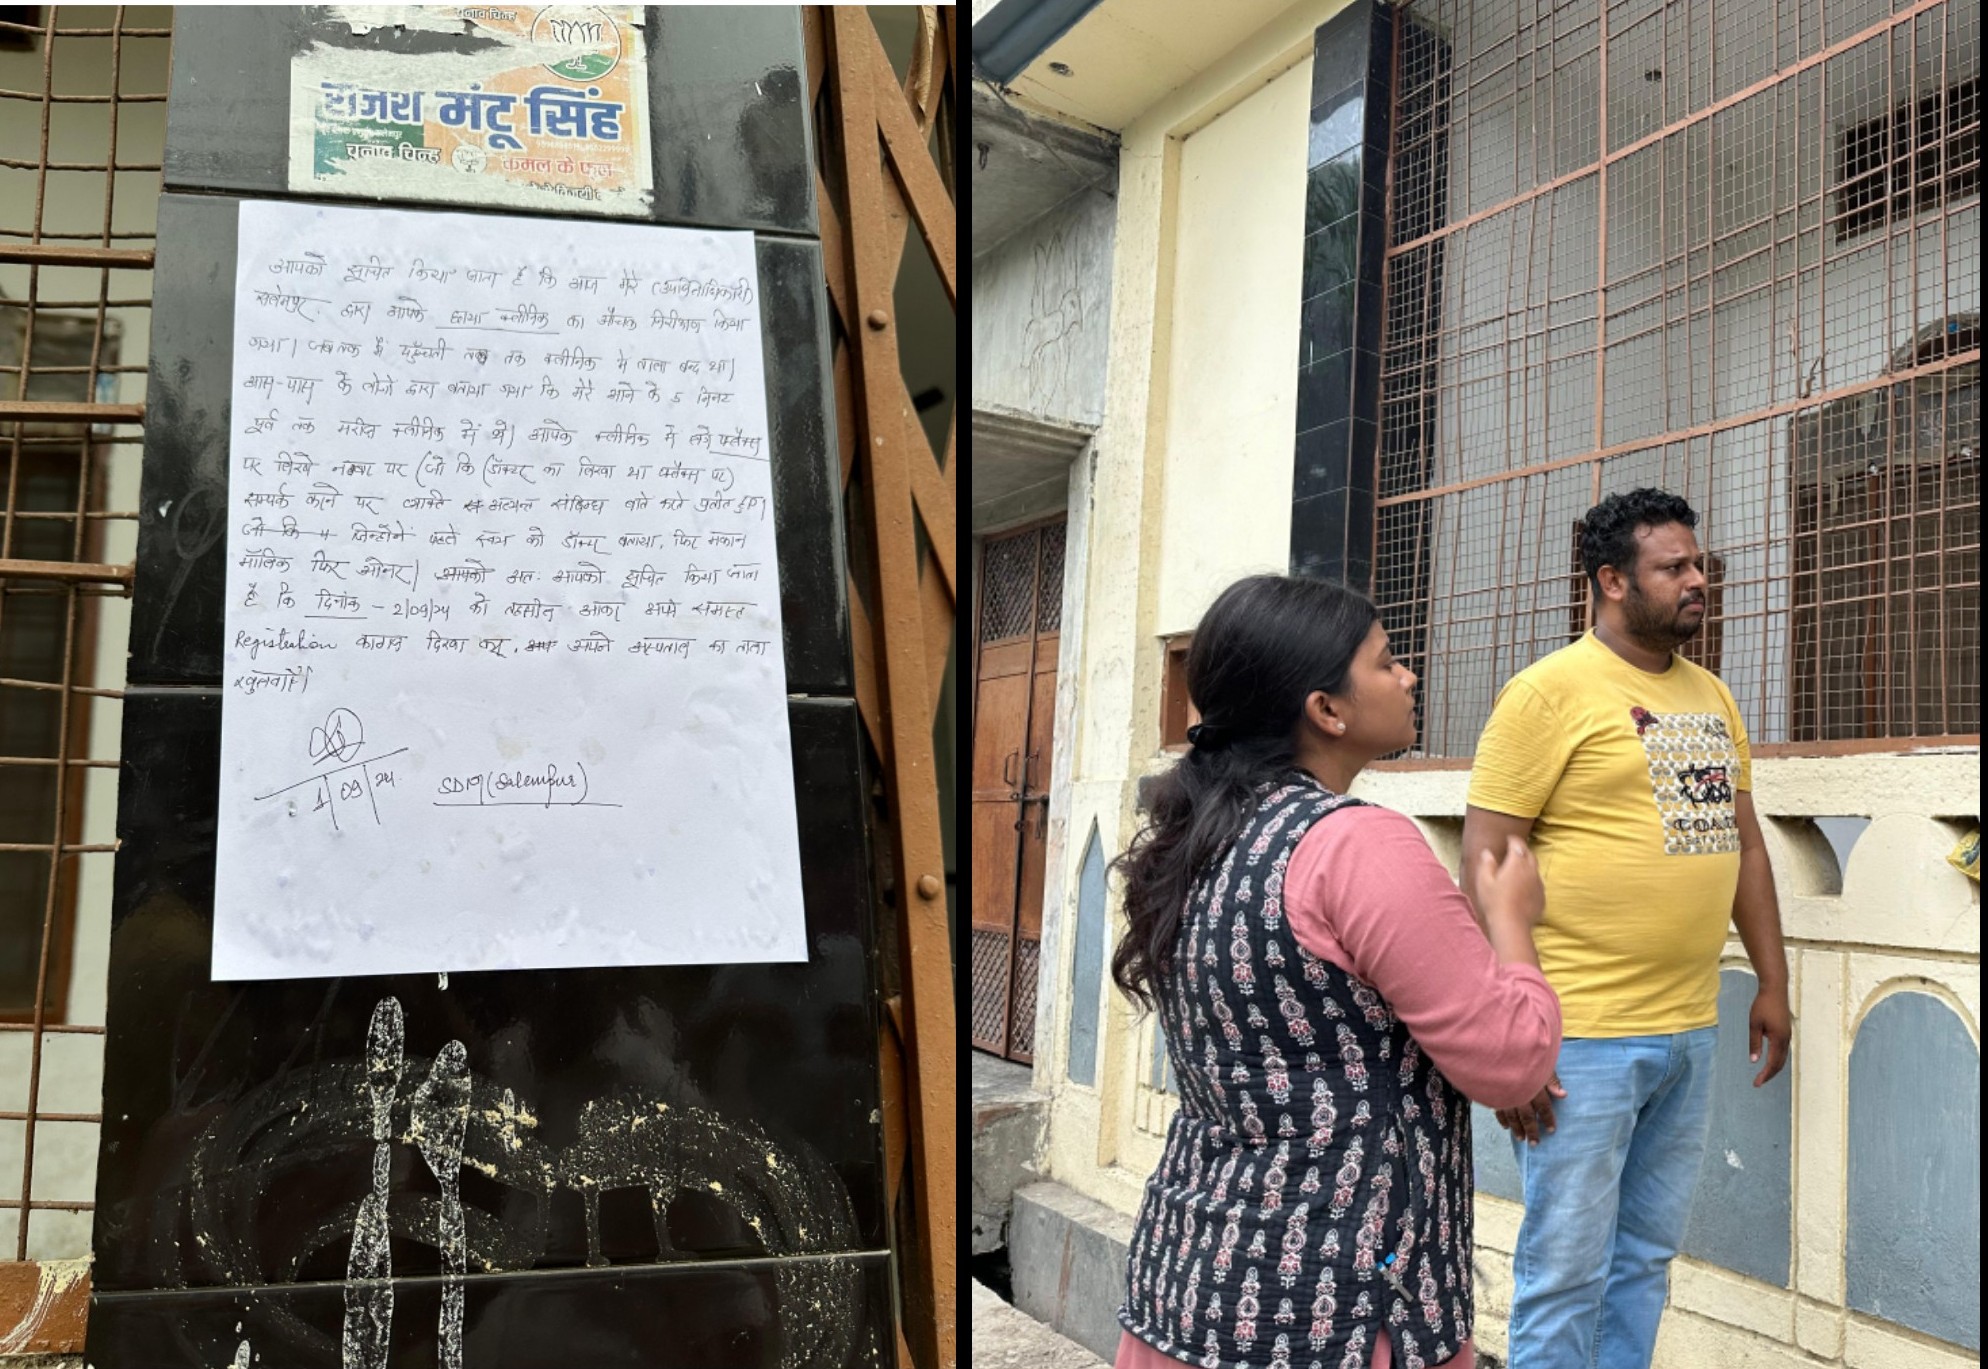 चुनाव चिन्ह
राजेश मंटू सिंह
चुनाव चिन्ह
कमल के फूल
आपको सूचित किया जाता है कि आज मेरे (उपजिलाधिकारी)
सलेमपुर, द्वारा आपके छाया क्लीनिक का औचक निरीक्षण किया
गया। जब तक मैं पहुँचती तब तक क्लीनिक में ताला बन्द था।
आस-पास के लोगो द्वारा बताया गया कि मेरे आने के 5 मिनट
पूर्व तक मरीज क्लीनिक में थे। आपके क्लीनिक में लगे फ्लैक्स
पर लिखे नम्बर पर (जो कि (डॉक्टर का लिखा था फ्लैक्स पर)
सम्पर्क करने पर व्यक्ति अत्यन्त संदिग्ध बाते करते प्रतीत हुए।
जो कि जिन्होंने पहले स्वयं को डॉक्टर बताया, फिर मकान
मॉलिक फिर ओनर। आपको अतः आपको सूचित किया जाता
है कि दिनांक - 2/09/24 को तहसील आकर अपने समस्त
Registration कागज दिखा कर, अपने अस्पताल का ताला
खुलवाऐं।
1/09/24 SDM (Salempur)